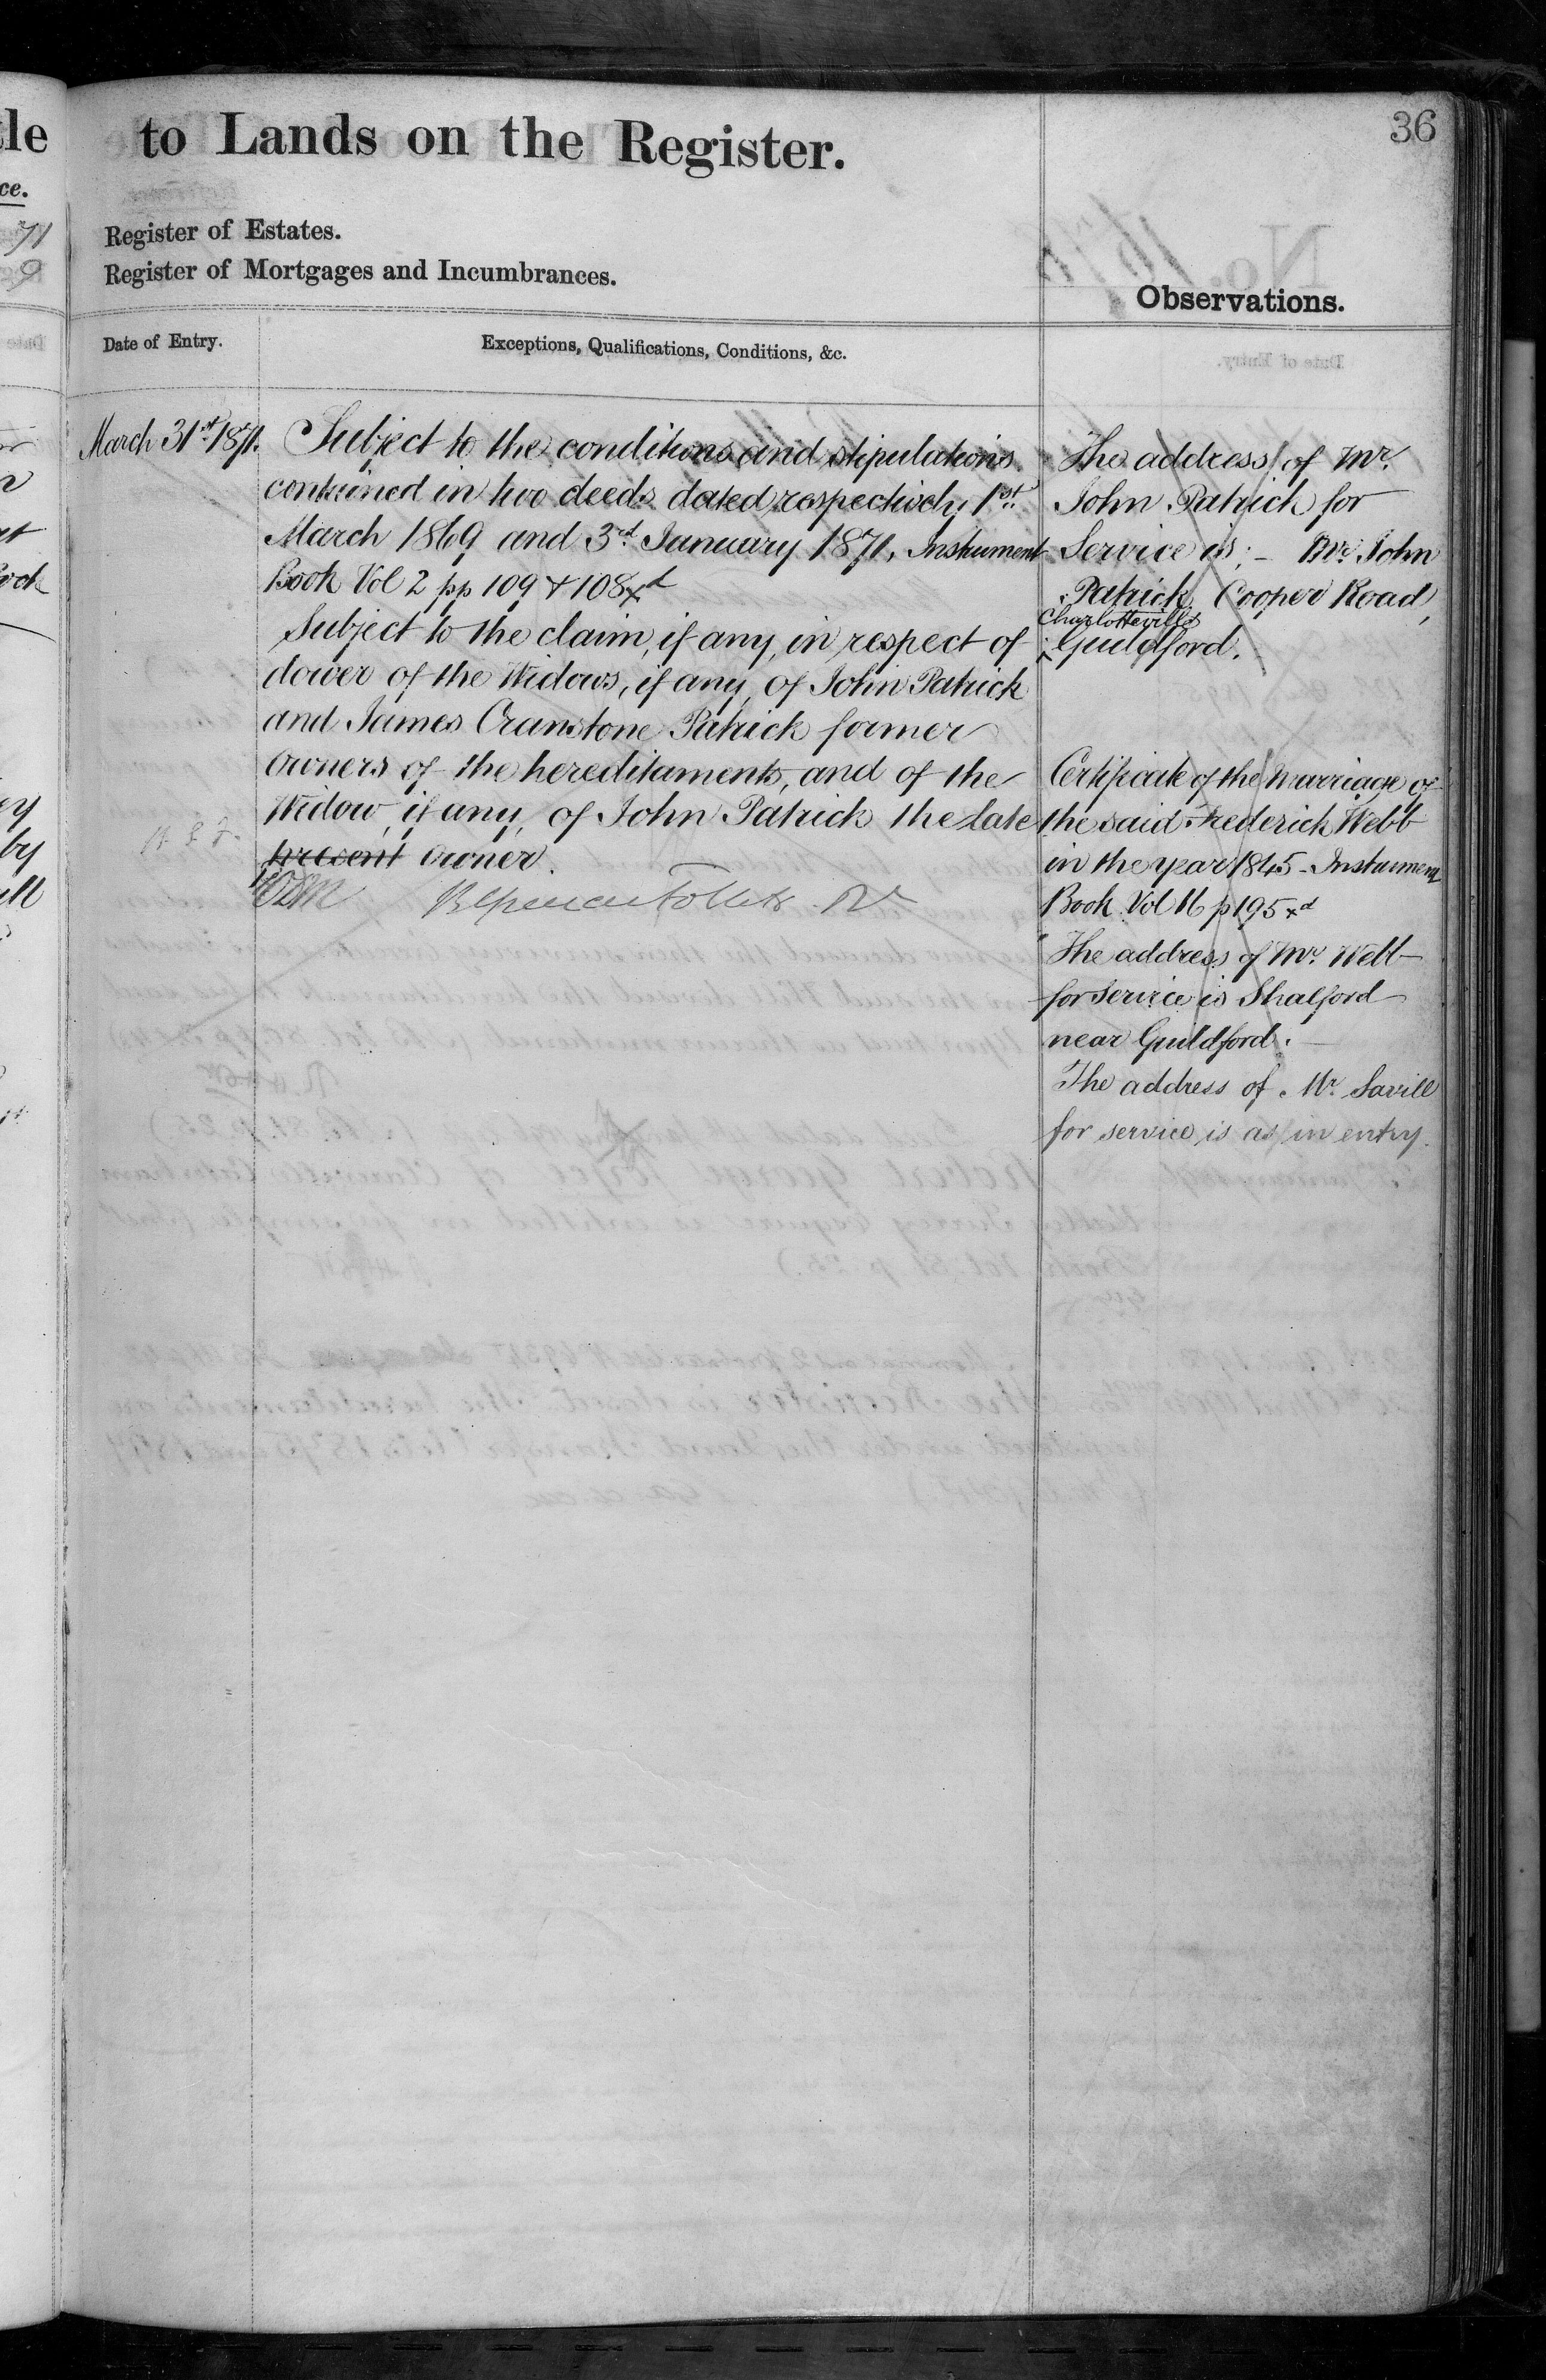 36
to Lands on the Register.
Register of Estates.
Register of Mortgages and Incumbrances.
Observations.
Date of Entry.
Exceptions, Qualifications, Conditions, &c.
March 31st 1871.
Subject to the conditions and stipulations
contained in two deeds dated respectively 1st
March 1869 and 3rd January 1871, Instrument
Book Vol 2 pp 109 & 108 xd
Subject to the claim, if any, in respect of
dower of the Widows, if any, of John Patrick
and James Cranstone Patrick former
owners of the hereditaments, and of the
Widow, if any, of John Patrick the late
present owner.
The address of Mr.
John Patrick for
Service is:- Mr. John
Patrick, Cooper Road,
Charlotteville
Guildford.
Certificate of the Marriage of
the said Frederick Webb
in the year 1845 - Instrument
Book Vol 16 p 195 xd
The address of Mr. Webb
for service is Shalford
near Guildford.
The address of Mr. Savill
for service is as in entry.